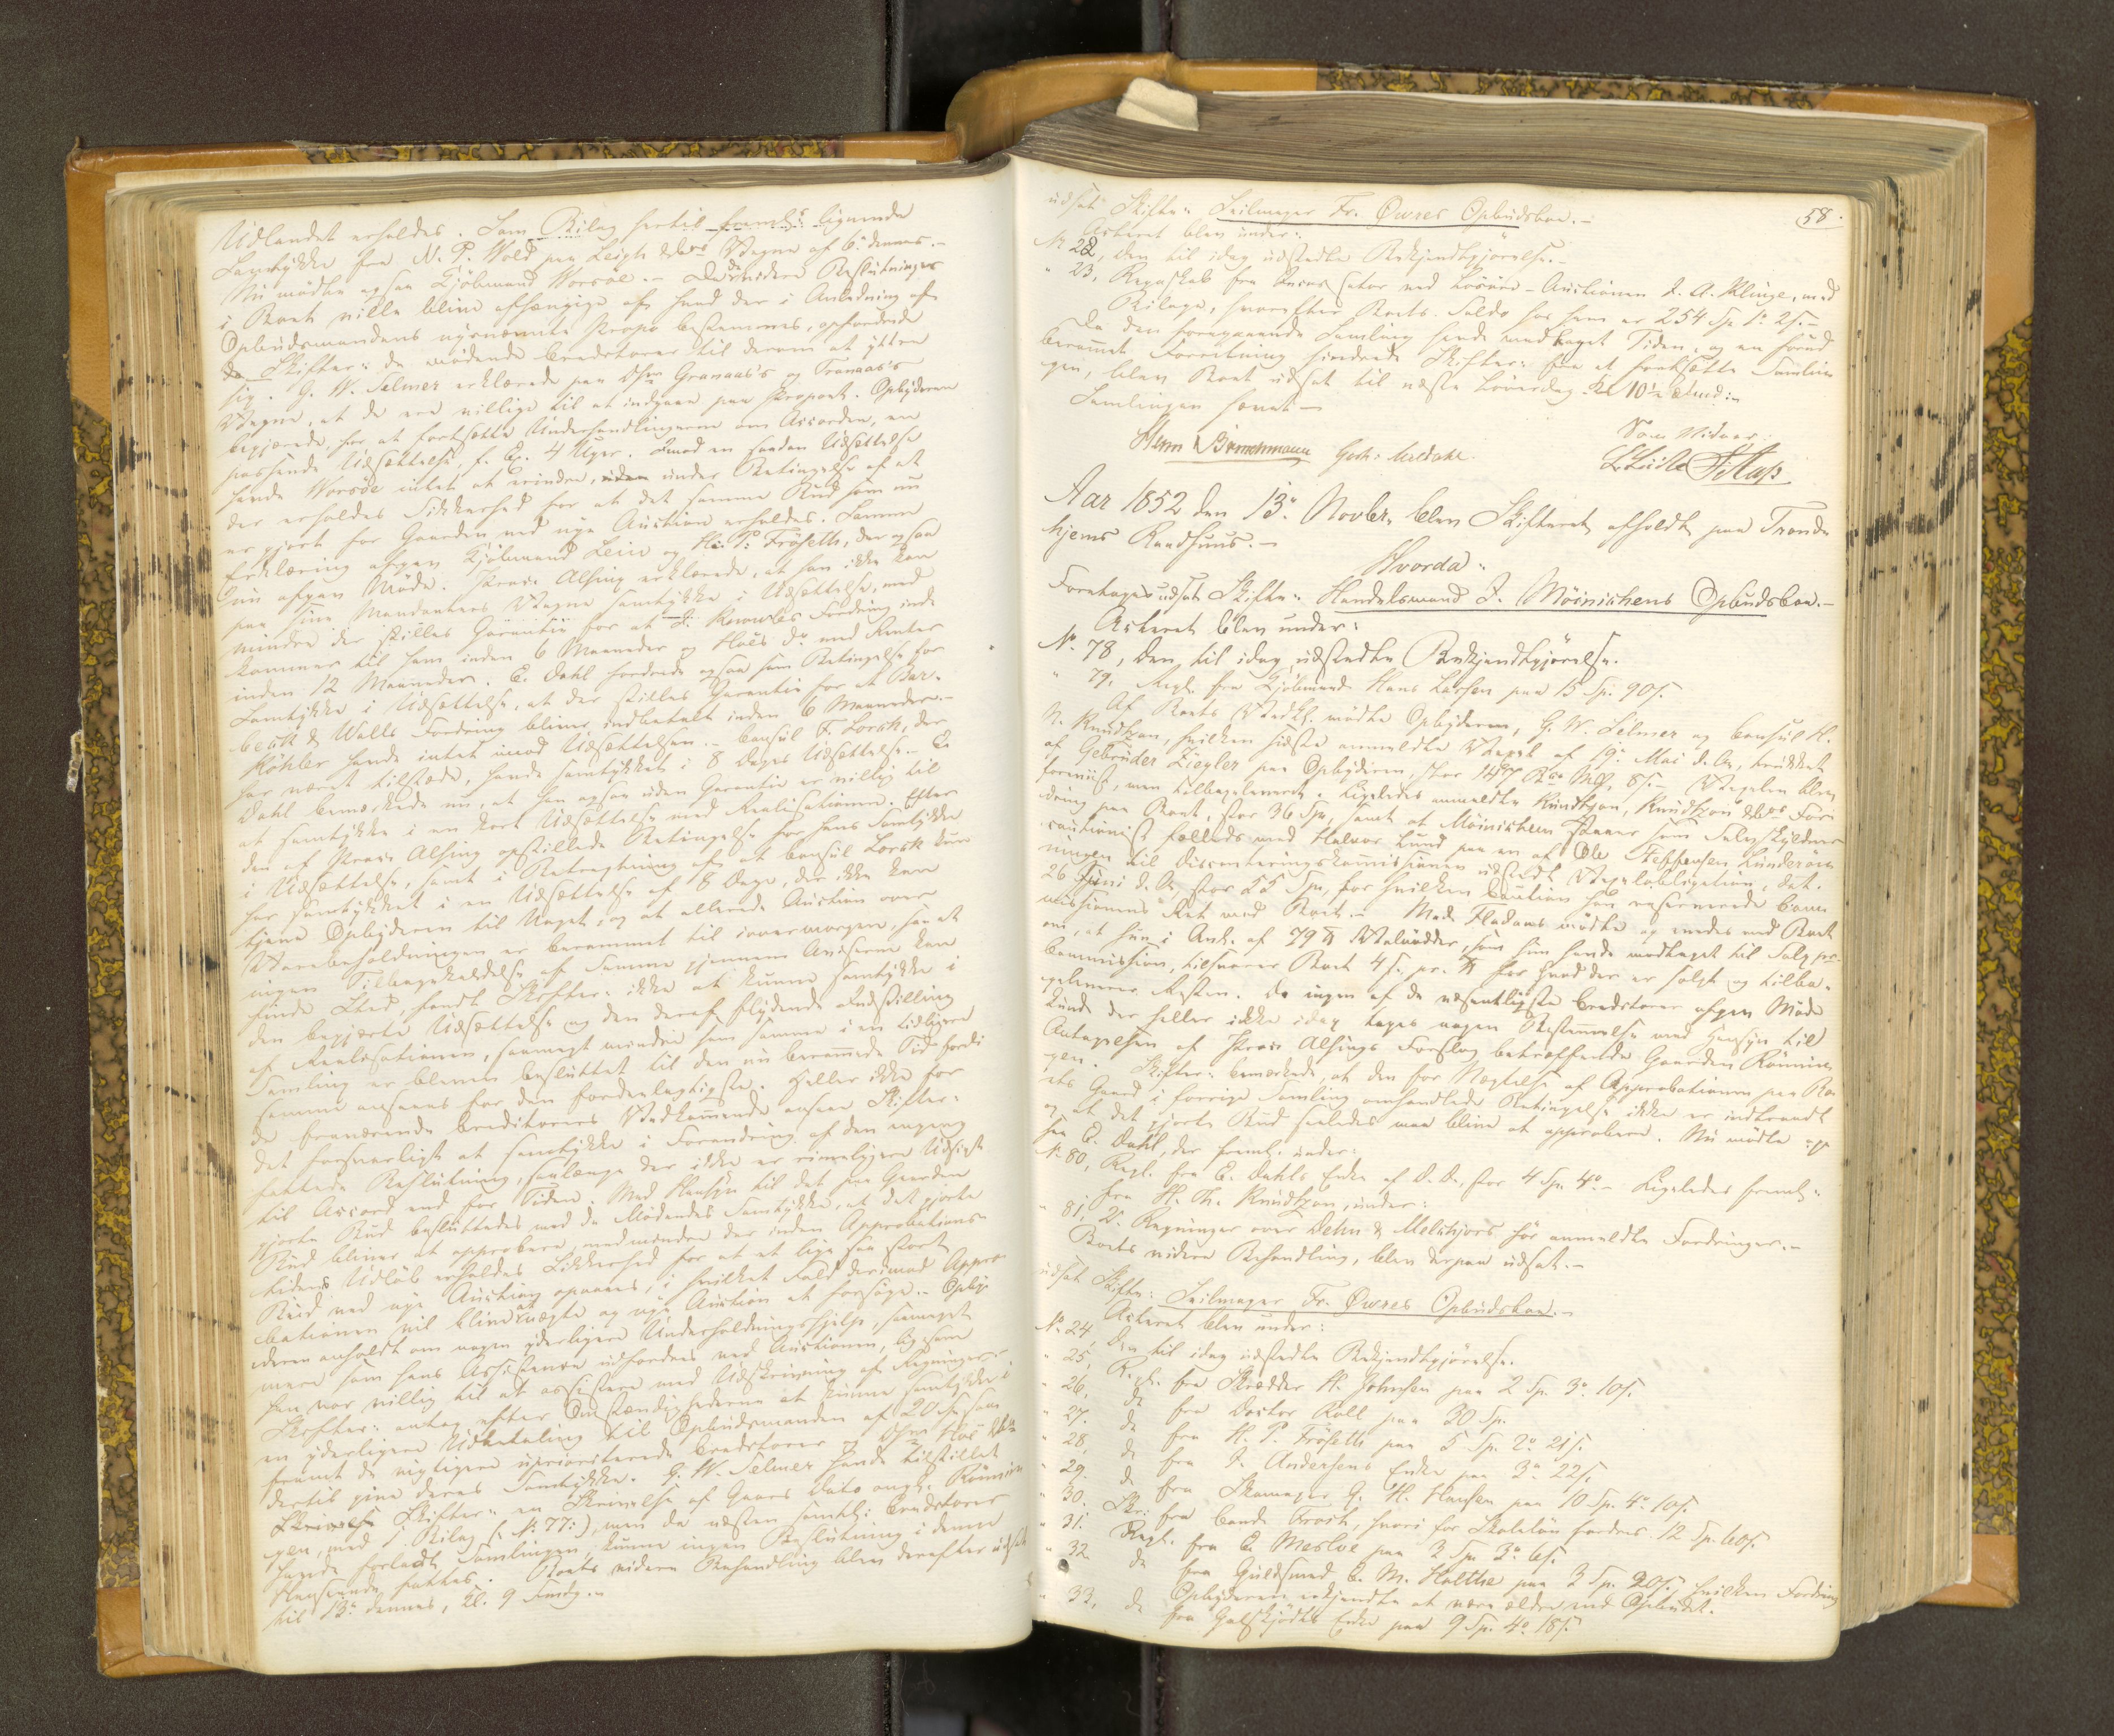 Udlandet erholdes. Som Bilag hertil fremls: lignende
Samtykke fra N. P. Wold paa Leigh & Co Vegne af 6te dennes.-
Nu mødte ogsaa Kjøbmand Worsöe.- Da de videre Beslutninger
i Boet ville blive afhængige af hvad der i Anledning af
Opbudsmandens nysnævnte Propos bestemmes, opfordrede
Skifterr: de mødende Creditorer til derom at yttre
sig. G. W. Selmer erklærede paa DHrr Granaas's og Tranaas's
Vegne, at de ere villige til at indgaae paa Propost. Opbyderen
begjærede, for at fortsætte Underhandlingerne om Accorden, en
passende Udsættelse, f. Ex. 4 Uger. Imod en saadan Udsættelse
havde Worsöe intet at erindre, under Betingelse af at
der erholdes Sikkerhed for at det samme Bud som nu
er gjort for Gaarden ved nye Auction erholdes. Samme
Erklæring afgav Kjøbmand Lein og H. P. Fröseth, der ogsaa
nu afgav Møde. Proc: Alsing erklærede, at han ikke kan
paa sine Mandanters Vegne samtykke i Udsættelse, med
mindre der stilles Garantie for at J. Knowles Fordring ind-
kommer til ham inden 6 Maaneder og Hoës Do med Renter
inden 12 Maaneder. C. Dahl fordrede ogsaa som Betingelse for
Samtykke i Udsættelse, at der stilles Garantie for at Bar-
beck & Wells Fordring bliver indbetalt inden 6 Maaneder.-
Köhler havde intet imod Udsættelsen.- Consul F. Lorck, der
har været tilstede, havde samtykket i 8 Dages Udsættelse.- C.
Dahl bemærkede nu, at han ogsaa uden Garantie er villig til
at samtykke i en kort Udsættelse med Realisationen. Efter
den af Proc: Alsing opstillede Betingelse for hans Samtykke
i Udsættelse, samt i Betragtning af at Consul Lorck kun
har samtykket i en Udsættelse af 8 Dage, der ikke kan
tjene Opbyderen til Noget, og at allerede Auction over
Varebeholdningen er berammet til iovermorgen, saa at
ingen Tilbagekaldelse af Samme gjennem Aviserne kan
finde Sted, fandt Skifterr: ikke at kunne samtykke i
den begjærte Udsættelse og den deraf flydende Indstilling
af Realisationen, saameget mindre som samme i en tidligere
Samling er bleven besluttet til den nu berammede Tid fordi
samme ansaaes for den fordeelagtigste. Heller ikke for
de fraværende Creditorers Vedkommende ansaae Skifterr:
det forsvarligt at samtykke i Forandring af den engang
fattede Beslutning, saalænge der ikke er rimeligere Udsigt
til Accord end for Tiden. Med Hensyn til det paa Gaarden
gjorte Bud besluttedes med de Mødendes Samtykke, at det gjorte
Bud bliver at approbere, medmindre der inden Approbations-
tidens Udløb erholdes Sikkerhed for at et lige saa stort
Bud ved nye Auction opnaaes, i hvilket Fald derimod Appro-
bationen vil blive at nægte og nye Auction at forsøge.- Opby-
deren anholdt om nogen yderligere Underholdningshjelp, saameget
mere som hans Assistence udfordres ved Auctionen, ligesom
han var villig til at assistere med Udskrivning af Regninger.-
Skifterr: antog efter Omstændighederne at kunne samtykke i
en yderligere Udbetaling til Opbudsmanden af 20 Sp, som
fremt de vigtigere uprioriterede Creditorer og DHrr Hoë & Co
dertil give deres Samtykke. G. W. Selmer havde tilstillet
Skifterr: en Skrivelse af Gaars Dato angl. Rønnin-
gen, med 1 Bilag (: No 77:), men da næsten samtl: Creditorer
havde forladt Samlingen kunne ingen Beslutning i denne
Henseende fattes. Boets videre Behandling blev derefter udsat
til 13de dennes, Kl. 9 Formdg.-
58.
udsat Skifte i Seilmager Fr. Øwres Opbudsboe.-
Acteret blev under:
No 22, den til idag udstedte Bekjendtgjørelse.-
" 23, Regnskab fra Incassator ved Løsøre-Auctionen L. A. Klinge, med
Bilage, hvorefter Boets Saldo hos ham er 254 Sp. 1 # 2 s.-
Da den foregaaende Samling havde medtaget Tiden, og en forud
berammet Forretning hindrede Skifterr: fra at fortsætte Samlin-
gen, blev Boet udsat til næste Løverdag Kl 10½ Formd:-
Samlingen hævet-
Som Vidner:
Herm Brinchmann Gerh: Meldahl.
Aar 1852 den 13de Novbr. blev Skifteret afholdt paa Trond-
hjems Raadhuus.-
Hvorda:
Foretages udsat Skifte i Handelsmand J. Möinichens Opbudsboe.-
Acteret blev under:
No. 78, den til idag udstedte Bekjendtgjørelse.
" 79, Regl. fra Kjøbmand Hans Larsen paa 15 Sp. 90 s.
Af Boets Vedk. mødte Opbyderen, G. W. Selmer og Consul H.
N. Knudtzon, hvilken sidste anmeldte Vexel af 19de Mai d. A., trukket
af Gebrüder Ziegler paa Opbyderen, stor 1487 Bco Mk, 8 s.- Vexelen blev
foreviist, men tilbageleveret. Ligeledes anmeldte Knudtzon, Knudtzon & Co's For-
dring paa Boet, stor 36 Spd, samt at Möinichen staaer som Selvskyldner
cautionist fælleds med Halvor Lund paa en af Ole Steffensen Sunderöen
til Disconteringskommissionen udstedt Vexelobligation, dat.
26 Juni d. A., stor 55 Spd, for hvilken Caution han reserverede Com-
missionens Ret mod Boet.- Mad. Fladaas mødte og enedes med Boet
om, at hun i Anl. af 79 ℔ , som hun havde modtaget til Salg pr.
Commission, tilsvarer Boet 4 s. pr. ℔ for hvad der er solgt og tilba-
geleverer Resten. Da ingen af de væsentligste Creditorer afgav Møde
kunde der heller ikke idag tages nogen Bestemmelse med Hensyn til
Antagelsen af Proc: Alsings Forslag betræffende Gaarden Rønnin-
gen. Skifterr: bemærkede, at den for Nægtelse af Approbationen paa Bo-
ets Gaard i forrige Samling omhandlede Betingelse ikke er indtraadt
og at det gjorte Bud saaledes maa blive at approbere. Nu mødte og-
saa C. Dahl, der freml. under:
No 80, Regl. fra C. Dahls Enke af D. D., stor 4 Sp. 4 #.- Ligeledes freml:
fra H. Th. Knudtzon, under:
" 81, 2 Regninger over Dehn & Melchiors her anmeldte Fordringer.-
Boets videre Behandling, blev derpaa udsat.-
udsat Skifte i Seilmager Fr. Øwres Opbudsboe.-
Acteret blev under:
No 24, Den til idag udstedte Bekjendtgjørelse.
" 25, Regl. fra Skrædder H. Johnsen paa 2 Sp. 3 # 10 s.
" 26, do fra Doctor Roll paa 30 Sp.
" 27. do fra H. P. Fröseth paa 5 Sp. 2 # 21 s.
" 28, do fra J. Andersens Enke paa 3 # 22 s.
" 29. do fra Skomager G. H. Hansen paa 10 Sp. 4 # 10 s.
" 30. Skr: fra Cand. Frost, hvori for Skoleløn fordres 12 Sp. 60 s.
" 31. Regl. fra C. Mesloe paa 2 Sp. 3 # 6 s.
" 32. do fra Guldsmed C. M. Holthe paa 3 Sp. 20 s., hvilken Fordring
Opbyderen erkjendte at være ældre end Opbudet.
" 33. do fra Galskjödts Enke paa 9 Sp. 4 # 18 s.